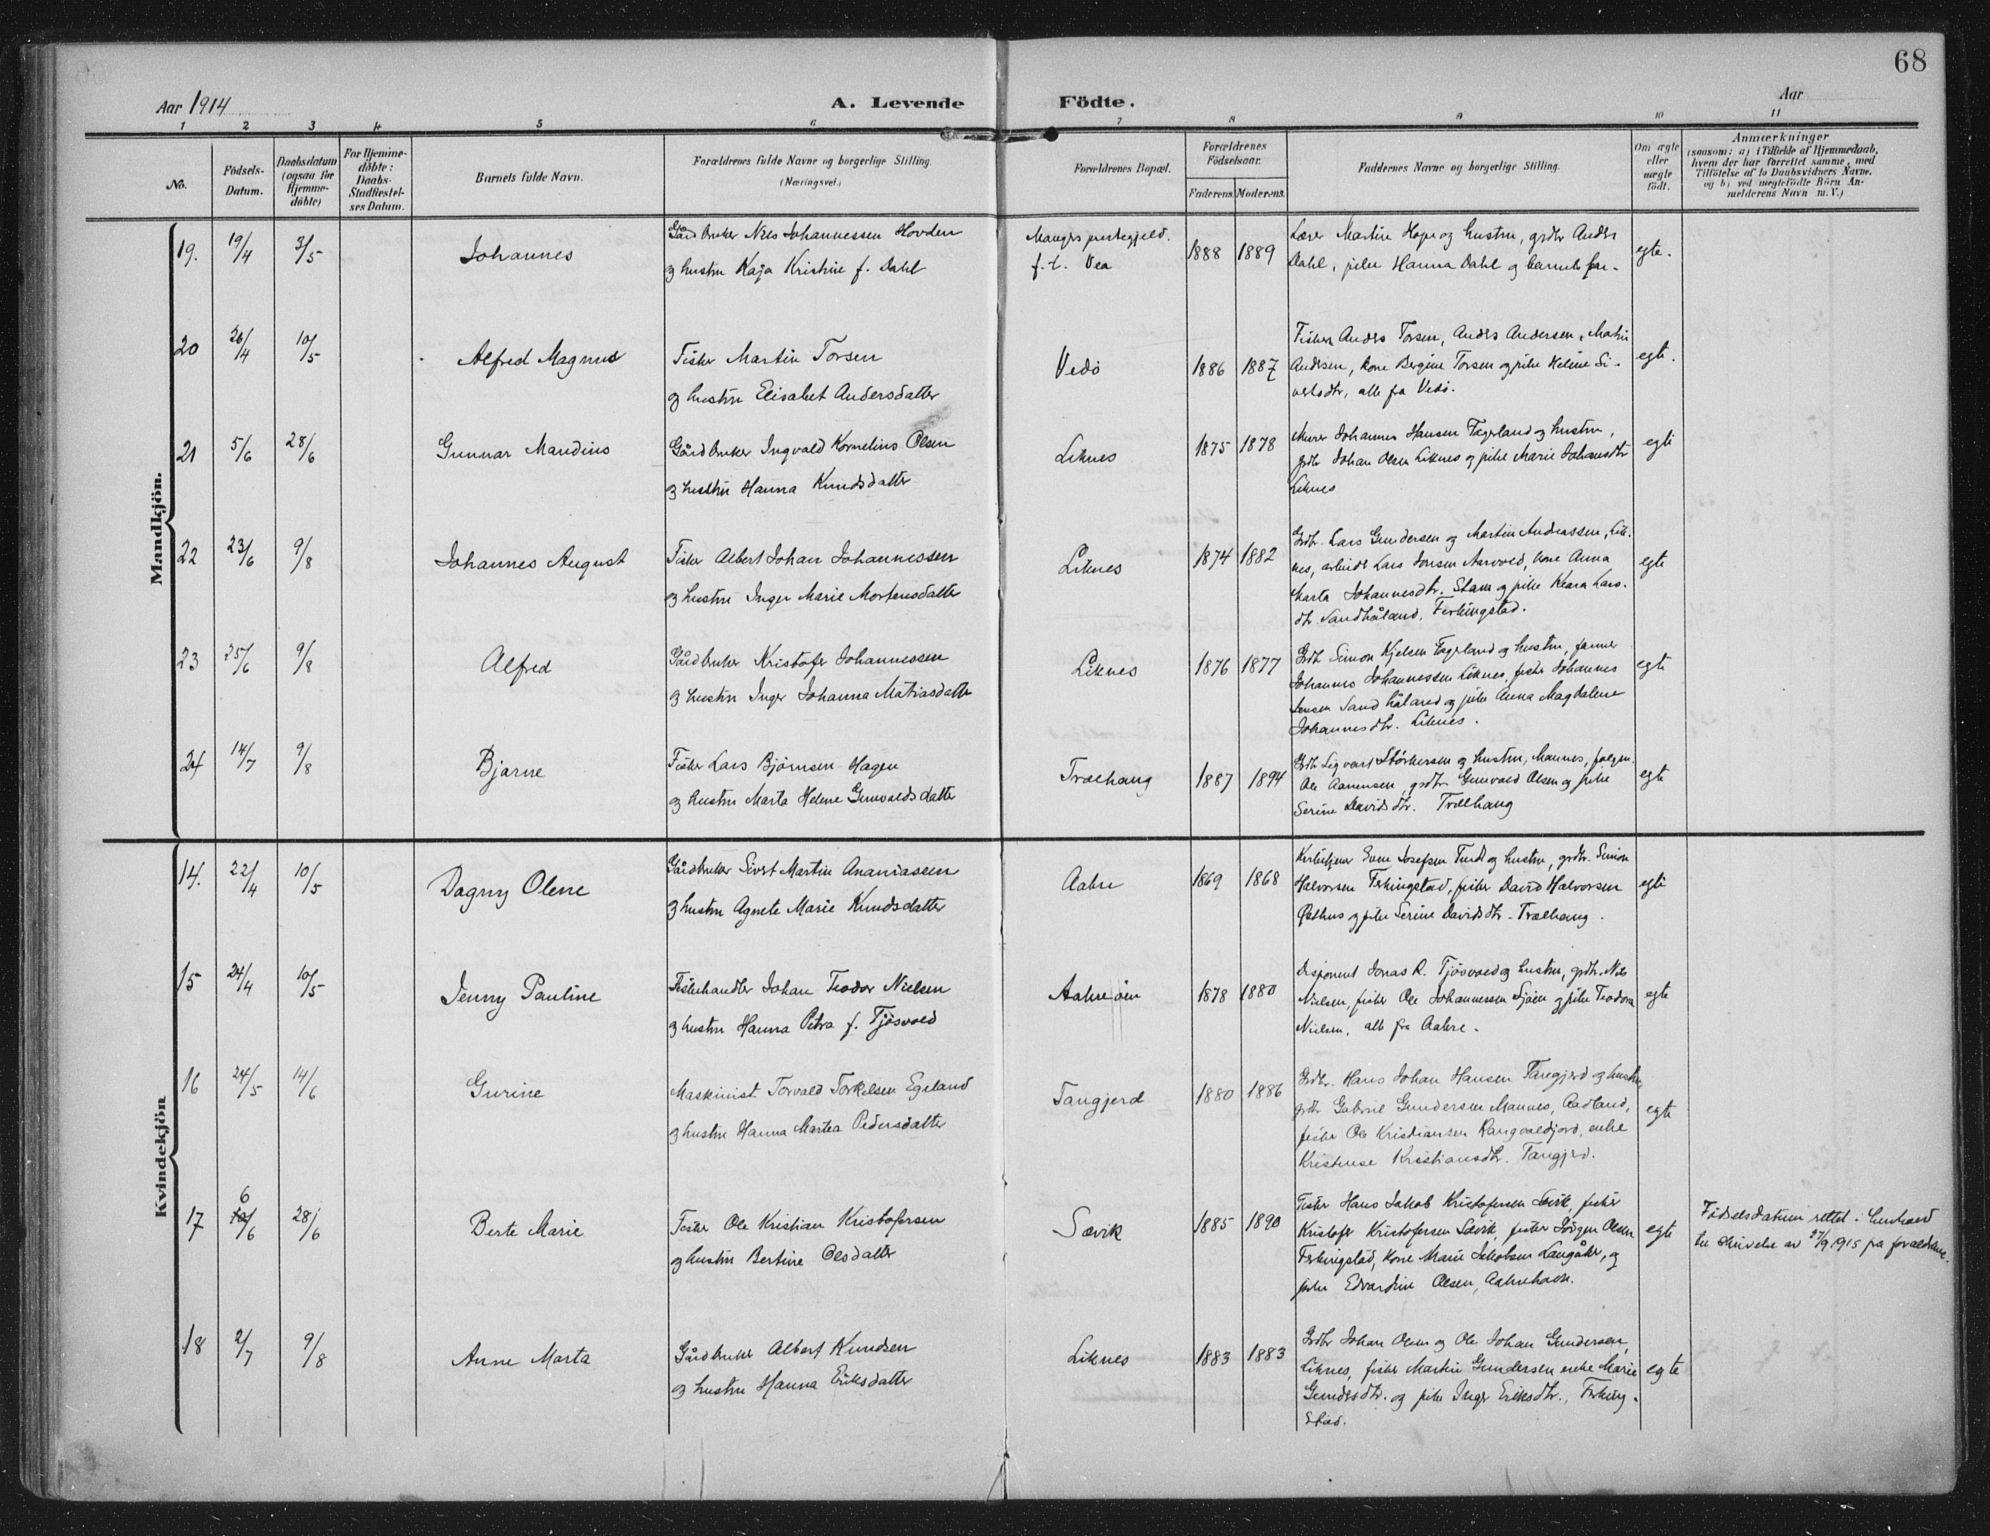 68
Aar 1914
A. Levende Födte.
Aar
1 2 3 4 5 6 7 8 9 10 11
No.
Födsels-Datum.
Daabsdatum (ogsaa for Hjemme-döbte)
For Hjemme-döbte: Daabs-Stadfæstel-ses Datum.
Barnets fulde Navn.
Forældrenes fulde Navne og borgerlige Stilling. (Næringsvei.)
Forældrenes Bopæl.
Forældrenes Födselsaar.
Faderens. Moderens.
Faddernes Navne og borgerlige Stilling.
Om ægte eller uægte födt.
Anmærkninger (saasom: a) i Tilfælde af Hjemmedaab, hvem der har forrettet samme, med Tilföielse af to Daabsvidners Navne. og b) ved uægtefödte Börn An-melderens Navn m. V.)
Mandkjön.
19. 19/4 3/5 Johannes
Gårdbruker Nils Johannessen Hovden
og hustru Kaja Kristine f. Dahl
Mangers prestegjeld.
f. t. Vea
1888 1889
Lærer Martin Hope og hustru, grdbr Anders
Dahl, pike Hanna Dahl og barnets far.
egte.
20 26/4 10/5 Alfred Magnus
Fisker Martin Torsen
og hustru Elisabet Andersdatter
Vedö
1886 1887
Fisker Anders Torsen, Anders Andersen, Martin
Andersen, kone Bergine Torsen og pike Heline Si-
vertsdtr, alle fra Vedö.
egte.
21 5/6 28/6 Gunnar Mandius
Gårdbruker Ingvald Kornelius Olsen
og hustru Hanna Knudsdatter
Liknes
1875 1878
Murer Johannes Hansen Fagerland og hustru,
grdbr Johan Olsen Liknes og pike Marie Johansdtr
Liknes
egte
22 23/6 9/8 Johannes August
Fisker Albert Johan Johannessen
og hustru Inger Marie Mortensdatter
Liknes
1874 1882
Grdbr. Lars Gundersen og Martin Andreassen, Lik-
nes, arbeider Lars Jonsen Aarvold, kone Anna
Marta Johannesdtr. Stam og pike Klara Lars-
dtr. Sandhåland, Ferkingstad.
egte
23 25/6 9/8 Alfred
Gårdbruker Kristofer Johannessen
og hustru Inger Johanna Matiasdatter
Liknes
1876 1877
Grdbr Simon Kjelsen Fagerland og hustru,
Johannes Johannessen Liknes, fisker Johannes
Jensen Sandhåland og pike Anna Magdalene
Johannesdtr. Liknes.
egte
24 14/7 9/8 Bjarne
Fisker Lars Björnsen Hagen
og hustru Marta Helene Gunvaldsdatter
Trælhaug
1887 1894
Grdbr Sigvart Störkersen og hustru, Mannes,
Ole Aanensen, grdbr. Gunvald Olsen og pike
Serine Davidsdtr. Trælhaug
egte
Kvindekjön
14. 22/4 10/5 Dagny Olene
Gårdbruker Sivert Martin Ananiasen
og hustru Agnete Marie Knudsdatter
Aakre
1869 1868
Kirketjener Even Josefsen Tend og hustru, grdbr. Simon
Halvorsen Ferkingstad, fisker David Halvorsen
Östhus og pike Serine Davidsdtr. Trælhaug.
egte
15 24/4 10/5 Jenny Pauline
Fiskehandler Johan Teodor Nielsen
og hustru Hanna Petra f. Tjösvold
Aakreöen
1878 1880
Disponent Jonas R. Tjösvold og hustru, grdbr. Nils
Nielsen, fisker Ole Johannessen Sjöen og pike Teodora
Nielsen, alle fra Aakre.
egte
16 24/5 14/6 Gurine
Maskinist Torvald Torkelsen Egeland
og hustru Hanna Martea Pedersdatter
Tangjerd
1880 1886
Grdbr. Hans Johan Hansen Tangjerd og hustru,
grdbr Gabriel Gundersen Mannes, Aadland,
fisker Ole Kristiansen Rangvaldjord, enke
Kristense Kristiansdtr. Tangjerd.
egte
17 6 10/6 28/6 Berte Marie
Fisker Ole Kristian Kristofersen
og hustru Bertine Olsdatter
Sævik
1885 1890
Fisker Hans Jakob Kristofersen Sævik, fisker
Kristofer Kristofersen Sævik, fisker Jörgen Olsen
Ferkingstad, kone Marie Jakobsen Langåker, og
pike Edvardine Olsen, Aakrehavn.
egte
Födselsdatum rettet i henhold
til skrivelse av 27/9 1915 fra forældrene.
18 2/7 9/8 Anne Marta
Gårdbruker Albert Knudsen
og hustru Hanna Eriksdatter
Liknes
1883 1883
Grdbr Johan Olsen og Ole Johan Gundersen,
Liknes, fisker Martin Gundersen enke Marie
Gundersdtr. og pike Inger Eriksdtr., Ferking-
stad.
egte